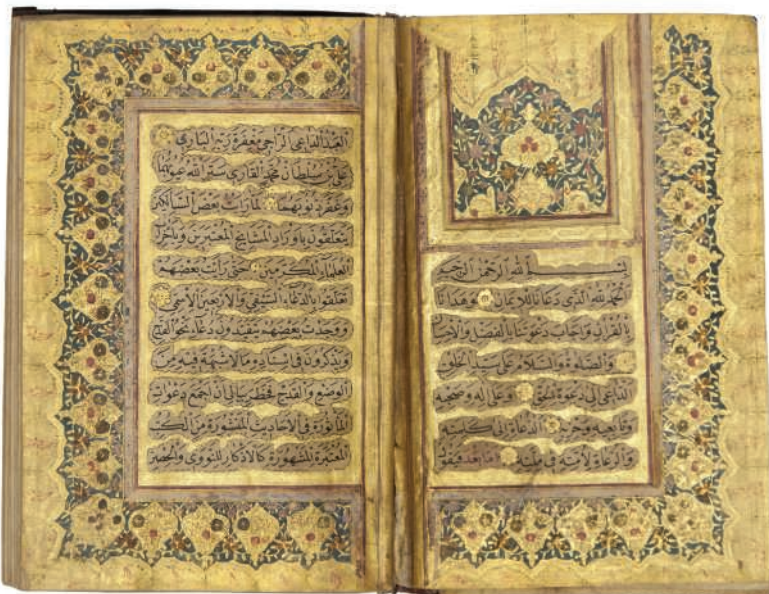 بسم الله الرحمن الرحيم
الحمد لله الذي دعانا للايمان وهدانا
بالقران واجاب دعوتنا بالفضل والاحسان
والصلوة والسلام على سيد الخلق
الداعي الى دعوة الحق وعلى اله وصحبه
وتابعيه وحزبه الدعاة الى كلمته
والرعاة لامته في ملته اما بعد فيقول
العبد الداعي الراجي مغفرة ربه الباري
علي بن سلطان محمد القاري ستر الله عيوبهما
وغفر ذنوبهما لما رأيت بعض السالكين
يتعلقون باوراد المشايخ المعتبرين وباحزاب
العلماء المكرمين حتى رأيت بعضهم
تعلقوا بالدعاء السيفي والاربعين الاسمي
ووجدت بعضهم يتقيدون بدعاء نحو القدح
ويذكرون في اسناده ما لا شبهة فيه من
الوضع والقدح فخطر ببالي ان اجمع دعوات
المأثورة في الاحاديث المنشورة من الكتب
المعتبرة المشهورة كالاذكار للنووي والحصن